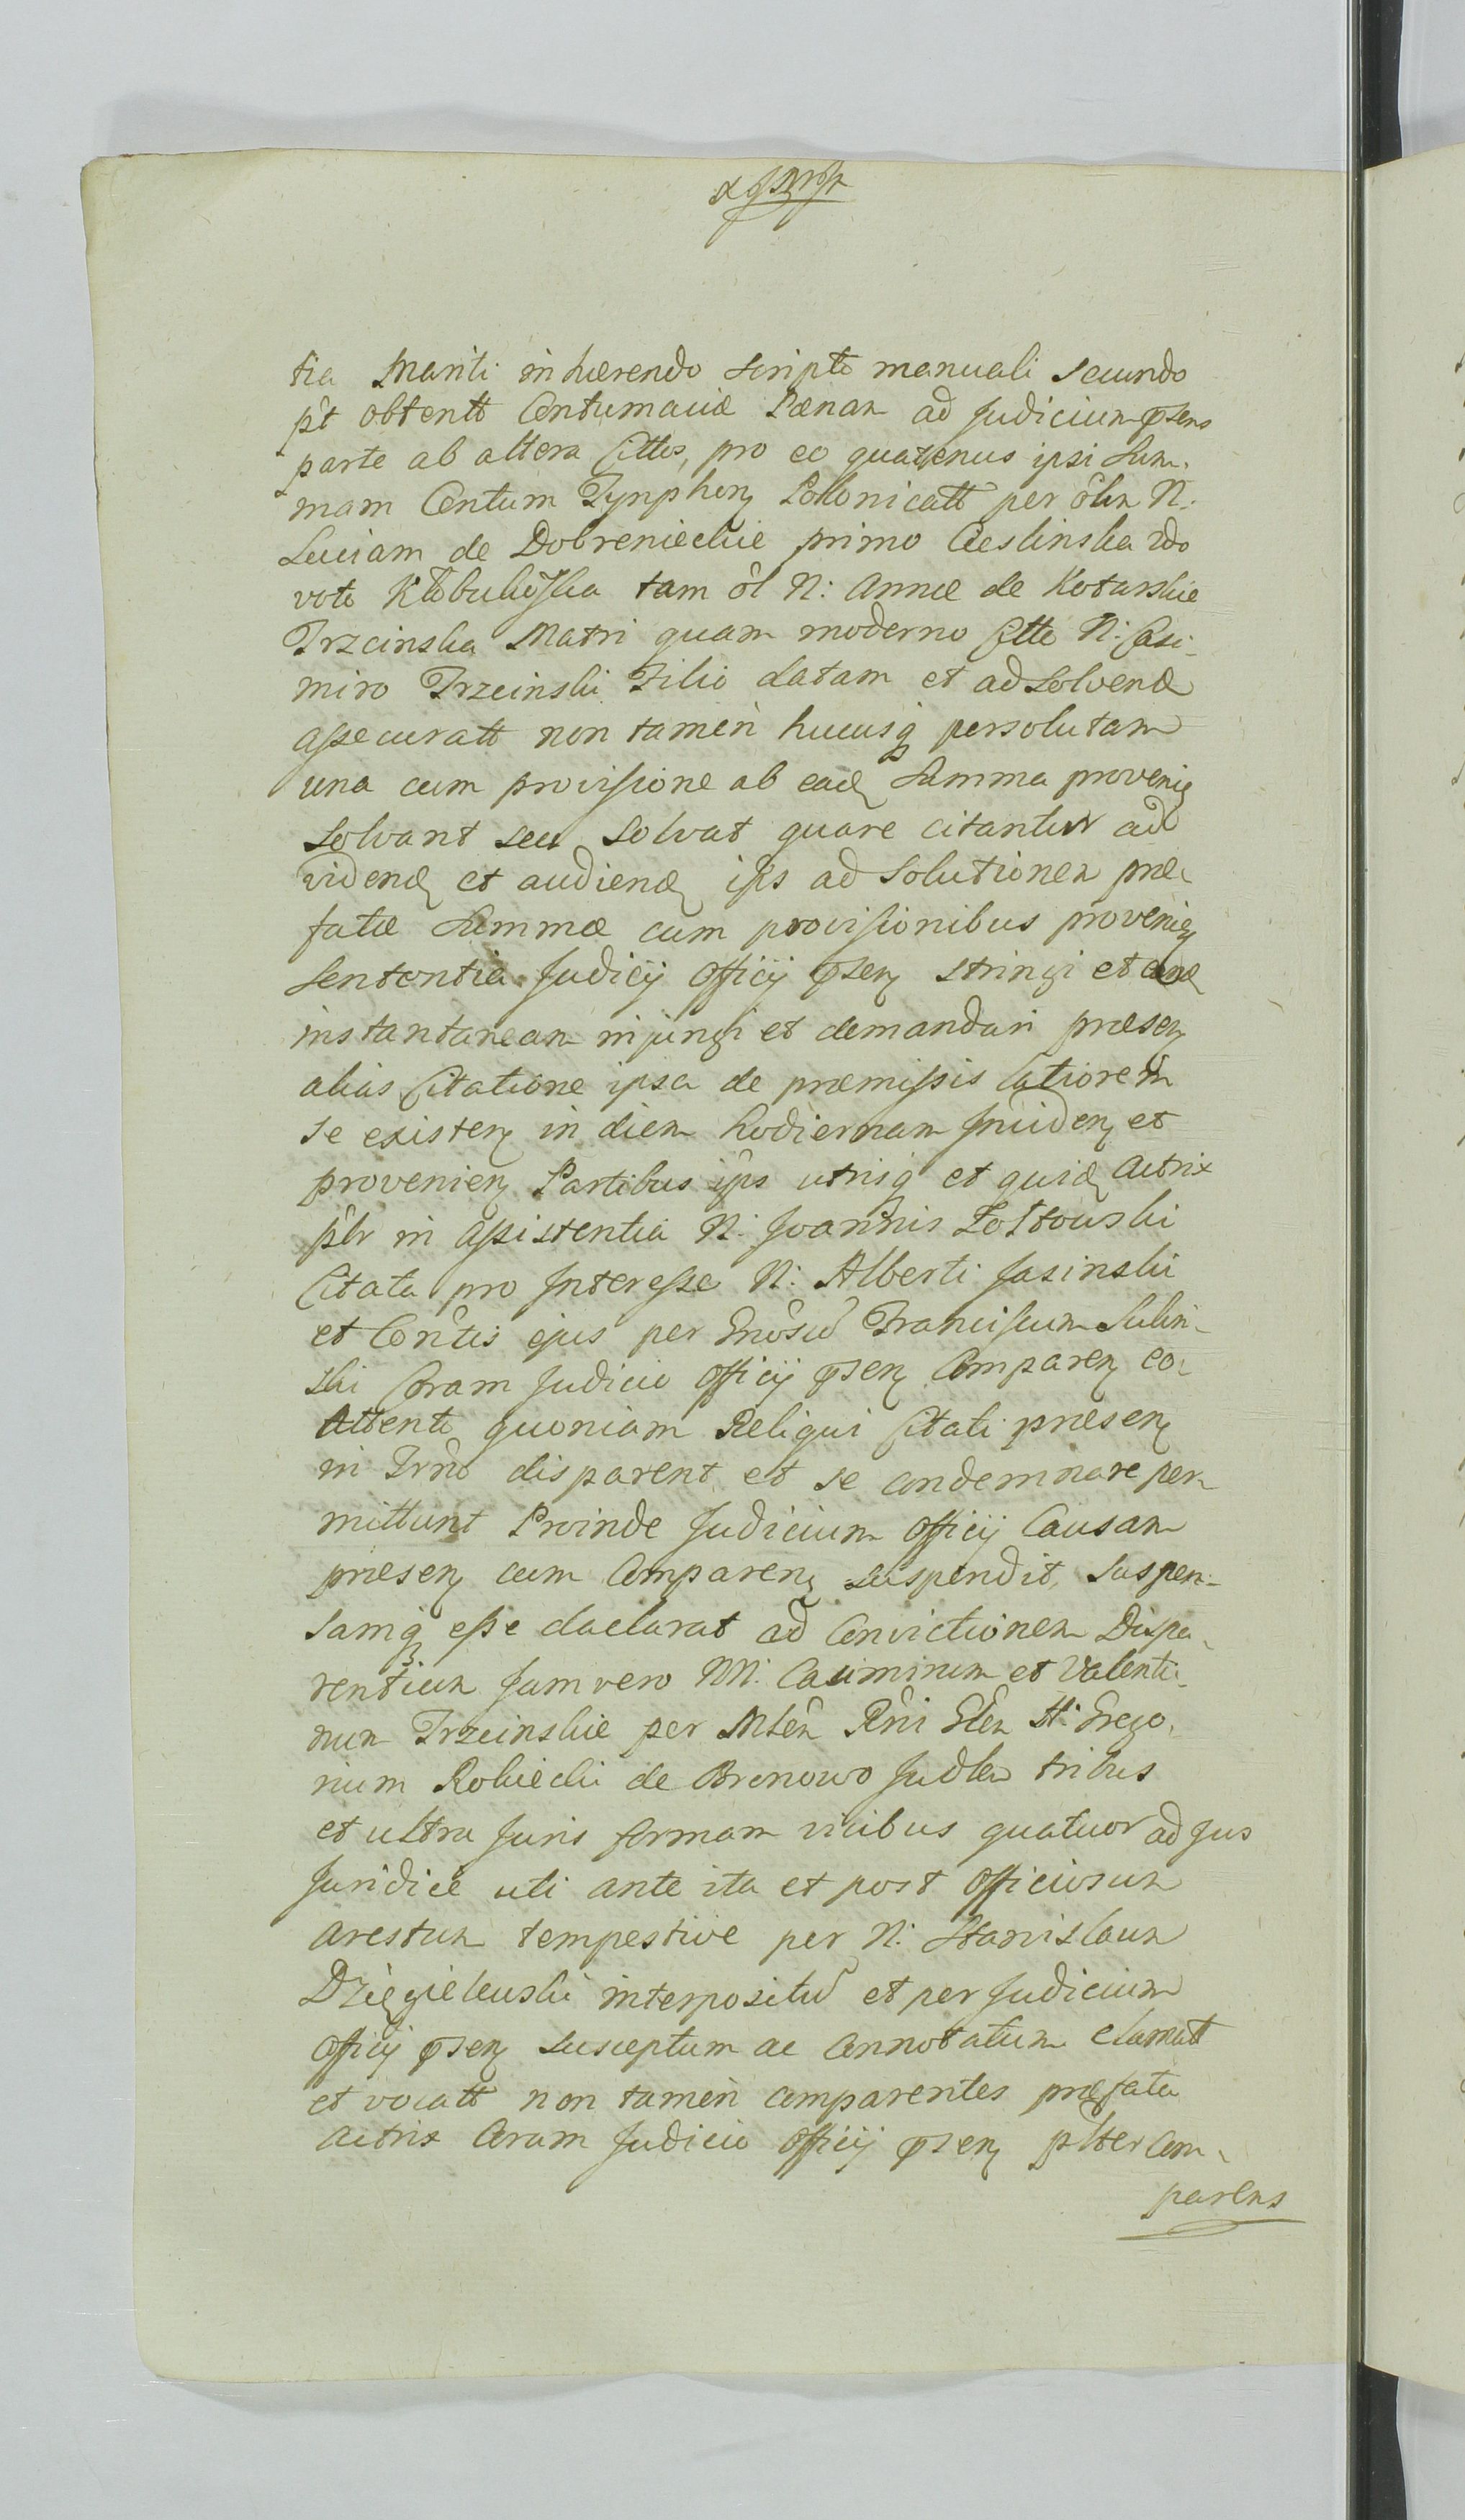 tia Mariti inhærendo scripto manuali secundo
pt obtentt Contumaciæ Pænam ad Judicium psens
parte ab altera Cittos, pro eo quatenus ipsi Sum-
mam Centum Tynphonȝ Polonicatt per olim N:
Luciam de Dobreniechie primo Cieslinska 2do
voto Kłobukoska tam ol N: Annæ de Kotarskie
Trzcinska Matri quam moderno Citto N: Casi-
miro Trzcinski Filio datam et ad solvend
assecuratt non tamen hucusq persolutam
una cum provisione ab ead Summa provenien
solvant seu solvat quare citantur ad
vidend et audiend ips ad solutionem præ-
fatæ Summæ cum provisionibus provenien
Sententia Judicij Officij psen stringi et eand
instantaneam injungi et demandari præsen
alias Citatione ipsa de præmissis latiorem
se existen in diem hodiernam Inciden et
provenien Partibus ips utrisq et quid Actrix
pltr in Assistentia N: Joannis Łottowski
Citata pro Interesse N: Alberti Jasinski
et Contis ejus per Gnosum Franciscum Sulin-
ski Coram Judicio Officij psen Comparen eo
Attento quoniam Religui Citati præsen
in Trno disparent et se condemnare per-
mittunt Proinde Judicium Officij Causam
præsen cum Comparen suspendit, suspen-
samq esse declarat ad Convictionem Dispa-
rentium Jam vero NN: Casimirum et Valenti-
num Trzcinskie per Mlem Rni Glem H: Grego-
rium Robiecki de Bronowo Judlem tribus
et ultra Juris formam vicibus quatuor ad Jus
Juridice uti ante ita et post Officiosum
arestum tempestive per N: Stanislaum
Dzięgielewski interpositum et per Judicium
Officij psen susceptum ac Connotatum clamatt
et vocatt non tamen comparentes præfata
Actrix Coram Judicio Officij psen plter Com-
parens